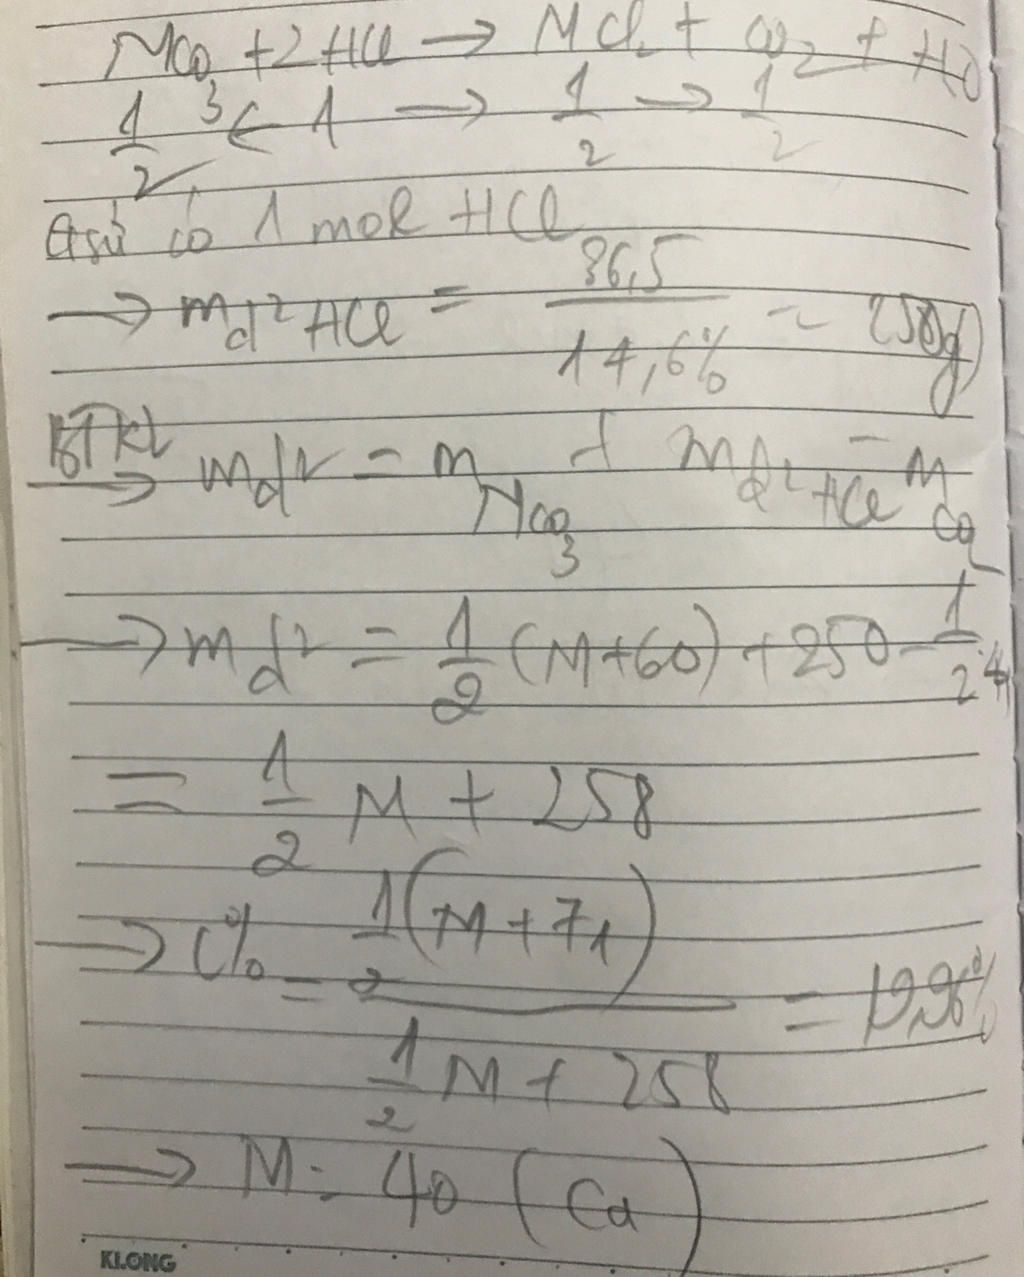 MCO3 + 2HCl → MCl2 + CO2 + H2O
1/2 ← 1 → 1/2 → 1/2
Giả sử có 1 mol HCl
→ md² HCl = 36,5 / 14,6% = 250g
BTKL → md² = mMCO3 + md² HCl - mCO2
→ md² = 1/2 (M+60) + 250 - 1/2 . 44
= 1/2 M + 258
→ C% = 1/2 (M + 71) / 1/2 M + 258 = 19,96%
→ M = 40 (Ca)
KLONG